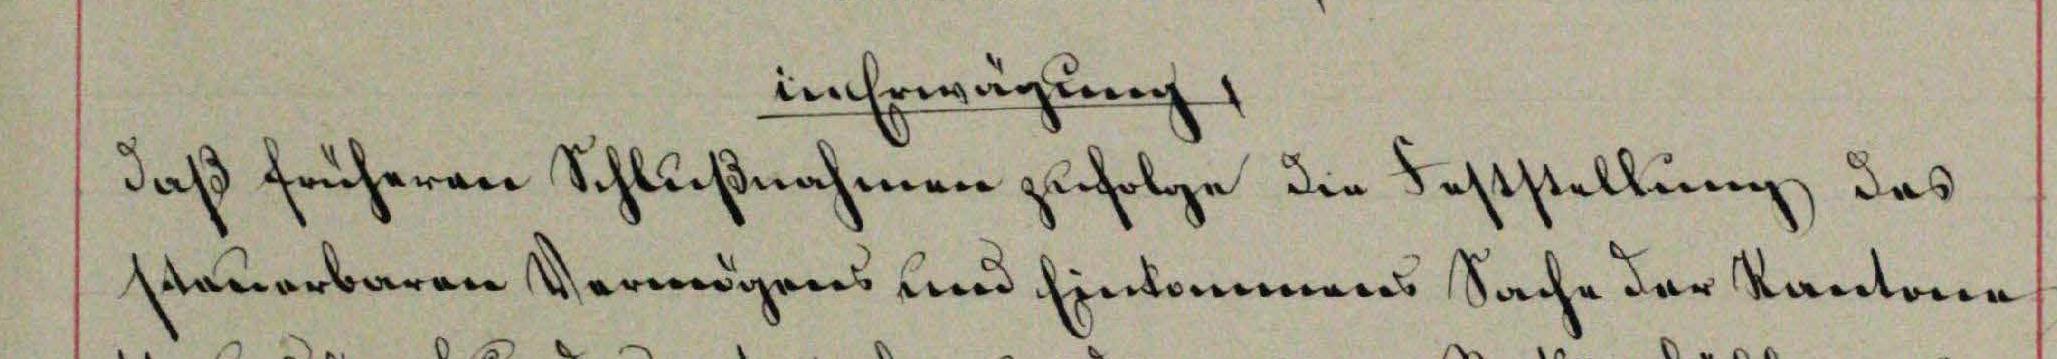 in Erwägung,
daß früheren Schlußnahmen zufolge die Feststellung des
steuerbaren Vermögens und Einkommens Sache der Kantone